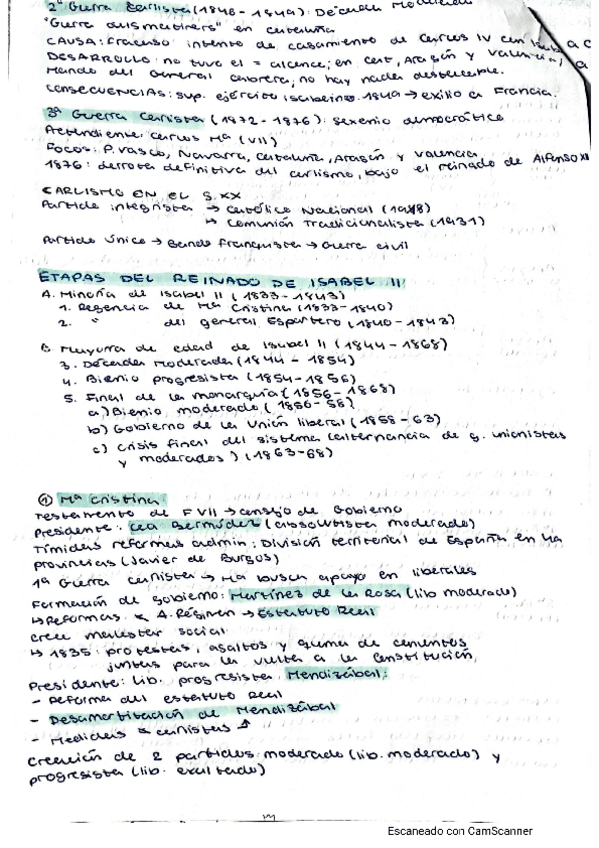 2ª Guerra Carlista (1846 - 1849): Década Moderada
"Guerra dels matiners" en Cataluña
CAUSA: Fracaso intento de casamiento de Carlos IV con Isabel
DESARROLLO: no tuvo el = alcance; en cat, Aragón y Valencia,
Mando del General Cabrera, no hay nada destacable.
CONSECUENCIAS: sup. ejército isabelino. 1849 → exilio a Francia.
3ª Guerra Carlista (1872 - 1876): Sexenio democrático
Pretendiente: Carlos Mª (VII)
Focos: P. Vasco, Navarra, Cataluña, Aragón y Valencia
1876: derrota definitiva del carlismo, bajo el reinado de Alfonso XII
CARLISMO EN EL S.XX
Partido integrista → Católico Nacional (1918)
↳ Comunión Tradicionalista (1931)
Partido Único → Bando Franquista → Guerra civil
ETAPAS DEL REINADO DE ISABEL II
A. Minoría de Isabel II (1833 - 1843)
1. Regencia de Mª Cristina (1833 - 1840)
2. " del general Espartero (1840 - 1843)
B. Mayoría de edad de Isabel II (1844 - 1868)
3. Década Moderada (1844 - 1854)
4. Bienio progresista (1854 - 1856)
5. Final de la monarquía (1856 - 1868)
a) Bienio moderado (1856 - 58)
b) Gobierno de la Unión liberal (1858 - 63)
c) Crisis final del sistema (alternancia de g. unionistas
y moderados) (1863-68)
① Mª Cristina
Testamento de FVII → consejo de Gobierno
Presidente: Cea Bermúdez (absolutista moderado)
Tímidas reformas admin: División territorial de España en 49
provincias (Javier de Burgos)
1ª Guerra carlista → Mª busca apoyo en liberales
Formación de gobierno: Martínez de la Rosa (lib moderado)
↳ Reformas A. Régimen → Estatuto Real
crece malestar social
↳ 1835: protestas, asaltos y quema de conventos
juntas para la vuelta a la Constitución,
Presidente: lib. progresista Mendizábal:
- Reforma del estatuto Real
- Desamortización de Mendizábal
- Medidas carlistas
Creación de 2 partidos: moderado (lib. moderado) y
progresista (lib. exaltado)
Escaneado con CamScanner